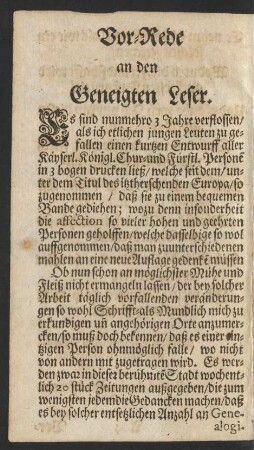 Vor-Rede
an den
Geneigten Leser.
Es sind nunmehro 3 Jahre verflossen/
als ich etlichen jungen Leuten zu ge-
fallen einen kurtzen Entwurff aller
Käyserl. Königl. Chur- und Fürstl. Personẽ
in 3 bogen drucken ließ/ welche seit dem/ un-
ter dem Titul des ietzherschenden Europa/ so
zugenommen / daß sie zu einem bequemen
Bande gediehen; wozu denn insonderheit
die affection so vieler hohen und geehrten
Personen geholffen/ welche dasselbige so wol
auffgenommen/ daß man zuunterschiedenen
mahlen an eine neue Auflage gedenckẽ müssen
Ob nun schon an möglichster Mühe und
Fleiß nicht ermangeln lassen / der bey solcher
Arbeit täglich vorfallenden veränderun-
gen so wohl Schrifft- als Mundlich mich zu
erkundigen uñ angehörigen Orte anzumer-
cken/ so muß doch bekennen/ daß es einer ein-
tzigen Person ohnmöglich falle/ wo nicht
von andern mit zugetragen wird. Es wer-
den zwar in dieser berühmtẽ Stadt wochent-
lich 20 stück Zeitungen außgegeben/ die zum
wenigsten jedem die Gedancken machen/ daß
es bey solcher entsetzlichen Anzahl an Gene-
alogi-